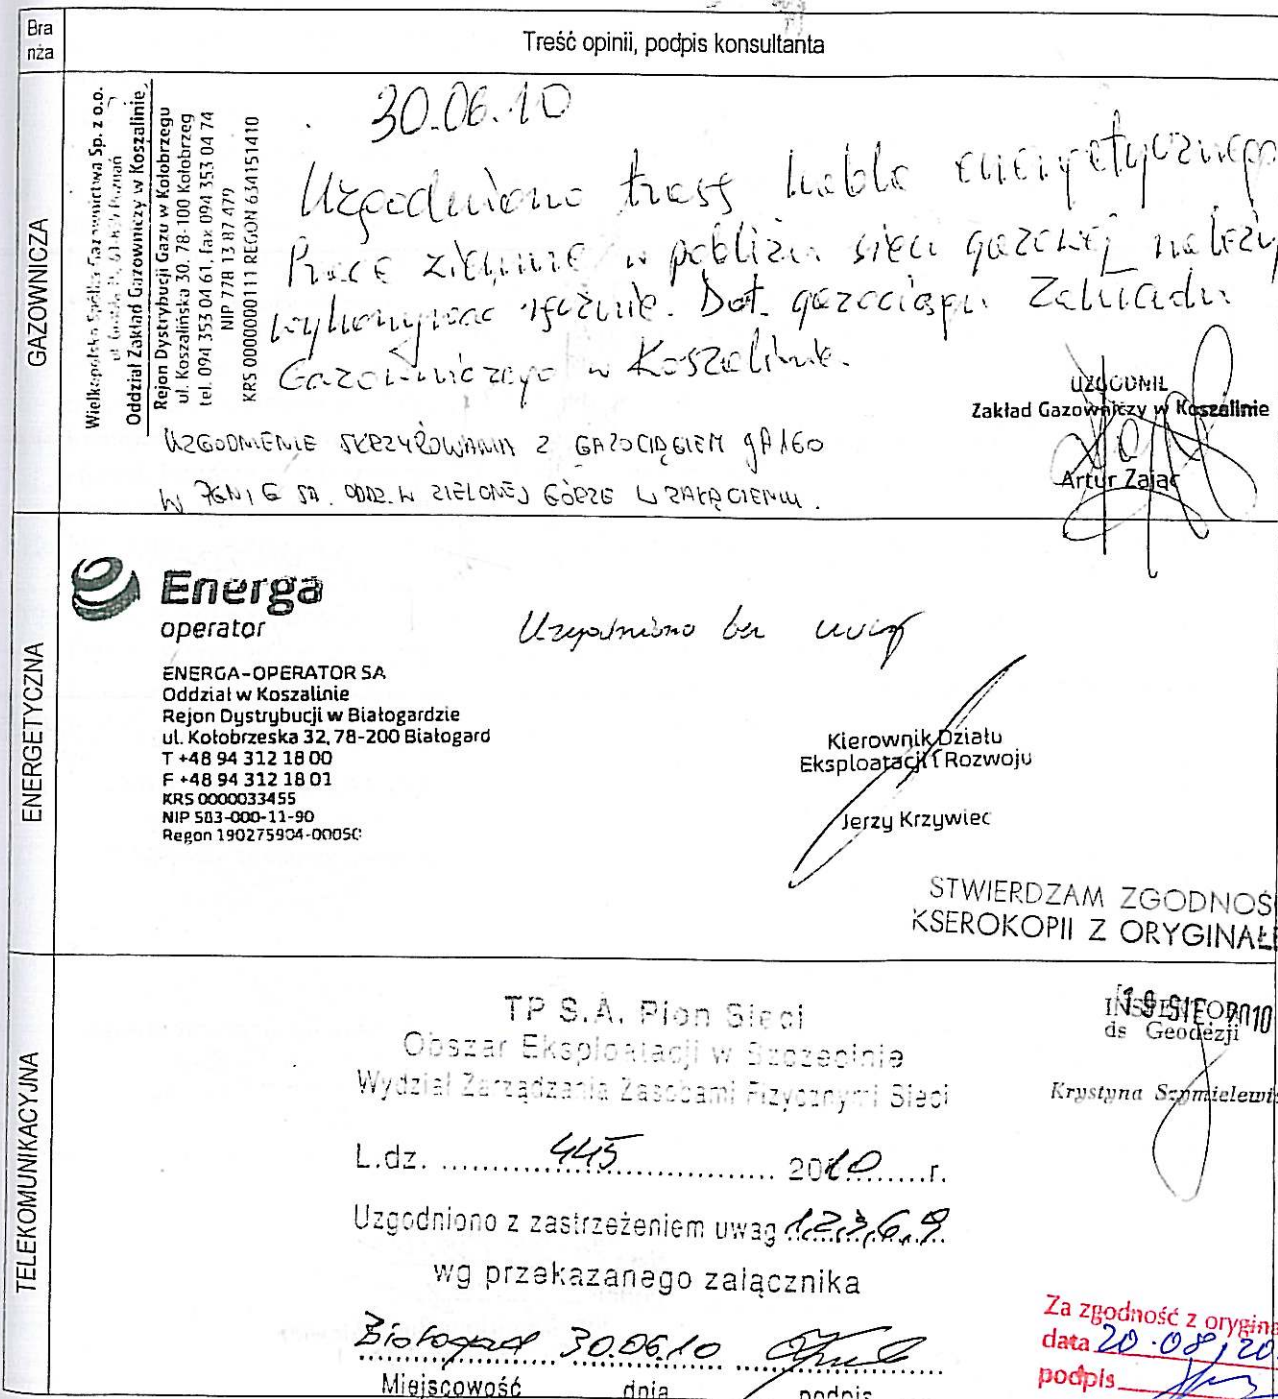 Bra
nża
Treść opinii, podpis konsultanta
GAZOWNICZA
Wielkopolska Spółka Gazownictwa Sp. z o.o.
Oddział Zakład Gazowniczy w Koszalinie
Rejon Dystrybucji Gazu w Kołobrzegu
ul. Koszalińska 30, 78-100 Kołobrzeg
tel. 094 353 04 61, fax 094 353 04 74
NIP 778 13 87 479
KRS 0000000111 REGON 634151410
30.06.10
Uzgodniono trasę kabla energetycznego
Prace ziemne w pobliżu sieci gazowej należy
wykonywać ręcznie. Dot. gazociągu Zakładu
Gazowniczego w Koszalinie.
UZGODNIENIE SKRZYŻOWANIA Z GAZOCIĄGIEM
W PGNIG SA. ODDZ. W ZIELONEJ GÓRZE W ZAŁĄCZENIU.
UZGODNIŁ
Zakład Gazowniczy w Koszalinie
Artur Zając
ENERGETYCZNA
Energa
operator
ENERGA-OPERATOR SA
Oddział w Koszalinie
Rejon Dystrybucji w Białogardzie
ul. Kołobrzeska 32, 78-200 Białogard
T +48 94 312 18 00
F +48 94 312 18 01
KRS 0000033455
NIP 583-000-11-90
Regon 190275904-00050
Uzgodniono bez uwag
Kierownik Działu
Eksploatacji i Rozwoju
Jerzy Krzywiec
STWIERDZAM ZGODNOŚ
KSEROKOPII Z ORYGINAŁE
TELEKOMUNIKACYJNA
TP S.A. Pion Sieci
Obszar Eksploatacji w Szczecinie
Wydział Zarządzania Zasobami Fizycznymi Sieci
L.dz. 445 2010 r.
Uzgodniono z zastrzeżeniem uwag 1,2,3,6,9
wg przekazanego załącznika
Białogard 30.06.10
Miejscowość dnia podpis
19 SIE. 2010
INSPEKTOR
ds Geodezji
Krystyna Szpmielewi
Za zgodność z orygina
data 20.08,20
podpis